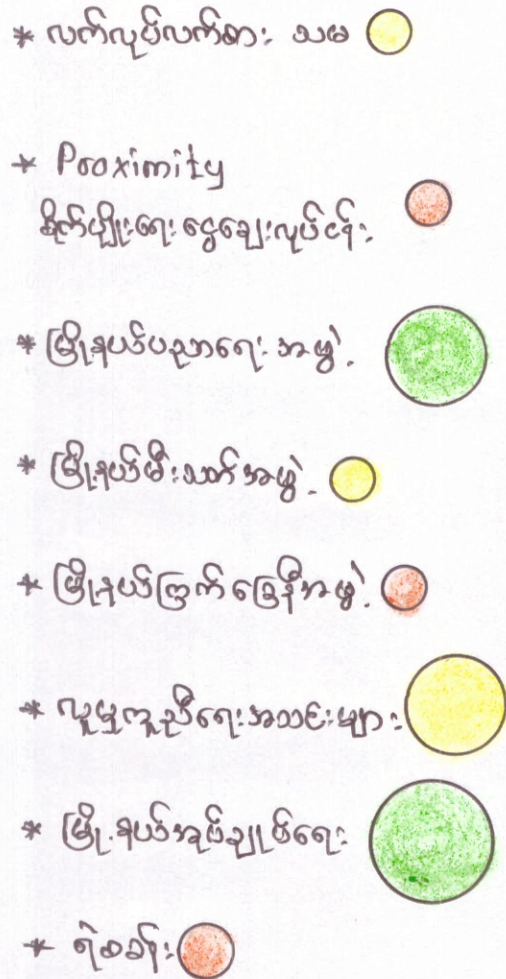 * လက်လုပ်လက်စား သမ
* Proximity
စိုက်ပျိုးရေး ငွေချေးလုပ်ငန်း
* မြို့နယ်ပညာရေး အဖွဲ့
* မြို့နယ်မီးသတ်အဖွဲ့
* မြို့နယ်ကြက်ခြေနီအဖွဲ့
* လူမှုကူညီရေးအသင်းများ
* မြို့နယ်အုပ်ချုပ်ရေး
* ရဲစခန်း